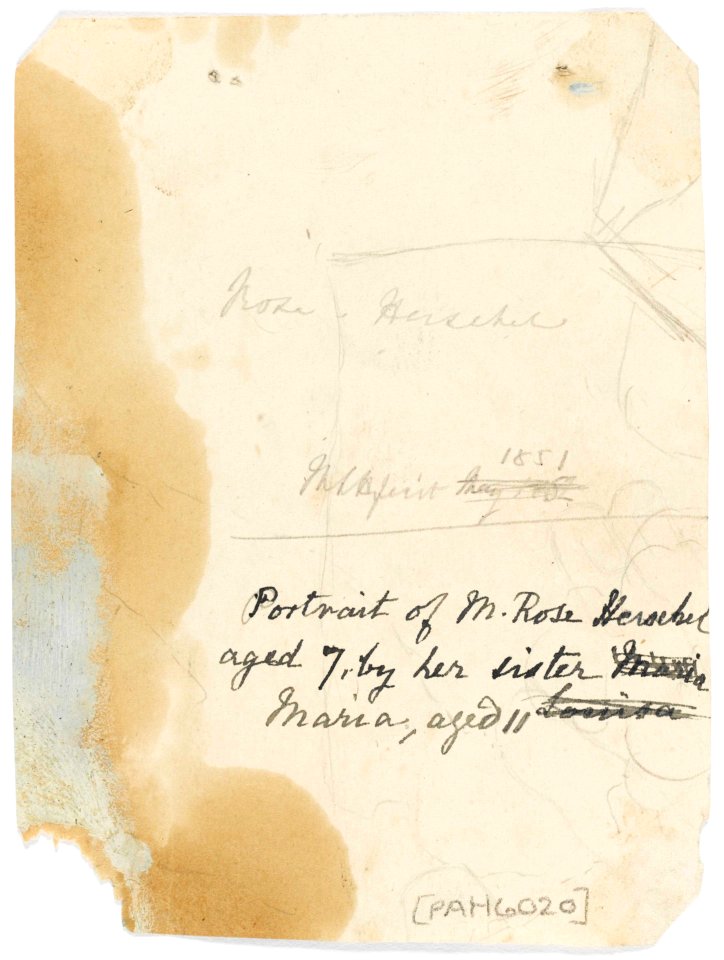 Rose Herschel
1851
fecit May
Portrait of M. Rose Herschel
aged 7, by her sister Maria
Maria, aged 11 Louisa
[PAH6020]